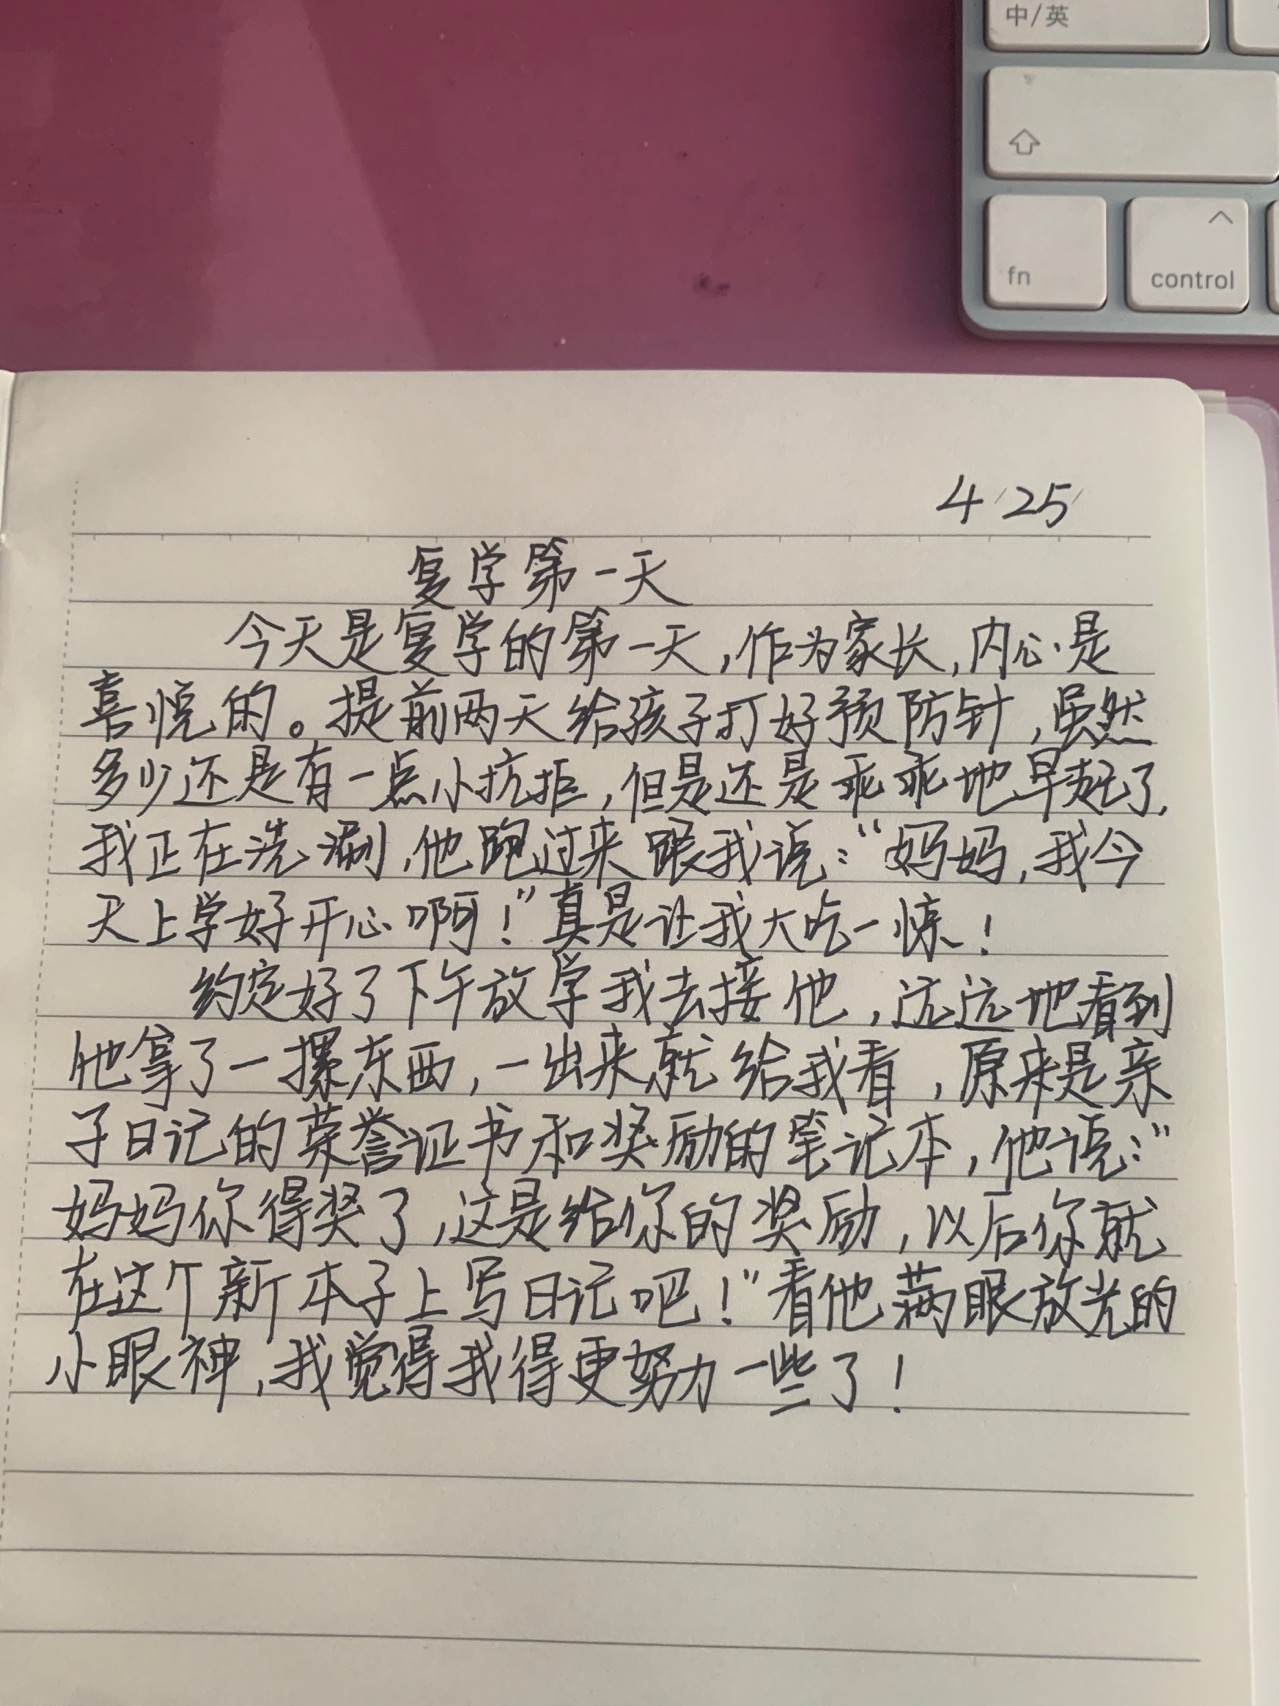 中/英
fn
control
4/25
复学第一天
今天是复学的第一天,作为家长,内心是
喜悦的。提前两天给孩子打好预防针,虽然
多少还是有一点小抗拒,但是还是乖乖地早起了,
我正在洗漱,他跑过来跟我说:“妈妈,我今
天上学好开心啊!”真是让我大吃一惊!
约定好了下午放学我去接他,远远地看到
他拿了一摞东西,一出来就给我看,原来是亲
子日记的荣誉证书和奖励的笔记本,他说:“
妈妈你得奖了,这是给你的奖励,以后你就
在这个新本子上写日记吧!”看他满眼放光的
小眼神,我觉得我得更努力一些了!